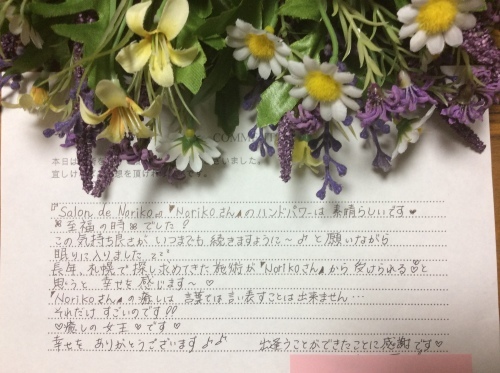 COMM
本日は
いました。
宜しけ
想を頂ければ
です。
『Salon de Noriko』 "Norikoさん"のハンドパワーは 素晴らしいです♥
"至福の時" でした!
この気持ち良さが、いつまでも 続きますように〜♪ と願いながら
眠りに入りました zzz
長年、札幌で探し求めてきた施術が "Norikoさん"から 受けられる♡と
思うと 幸せを感じます〜 ♡
"Norikoさん"の癒しは 言葉では言い表すことは出来ません…
それだけ すごいのです!!
♡癒しの女王♡です♥
幸せを ありがとうございます♪♪ 出逢うことができたことに感謝です♡